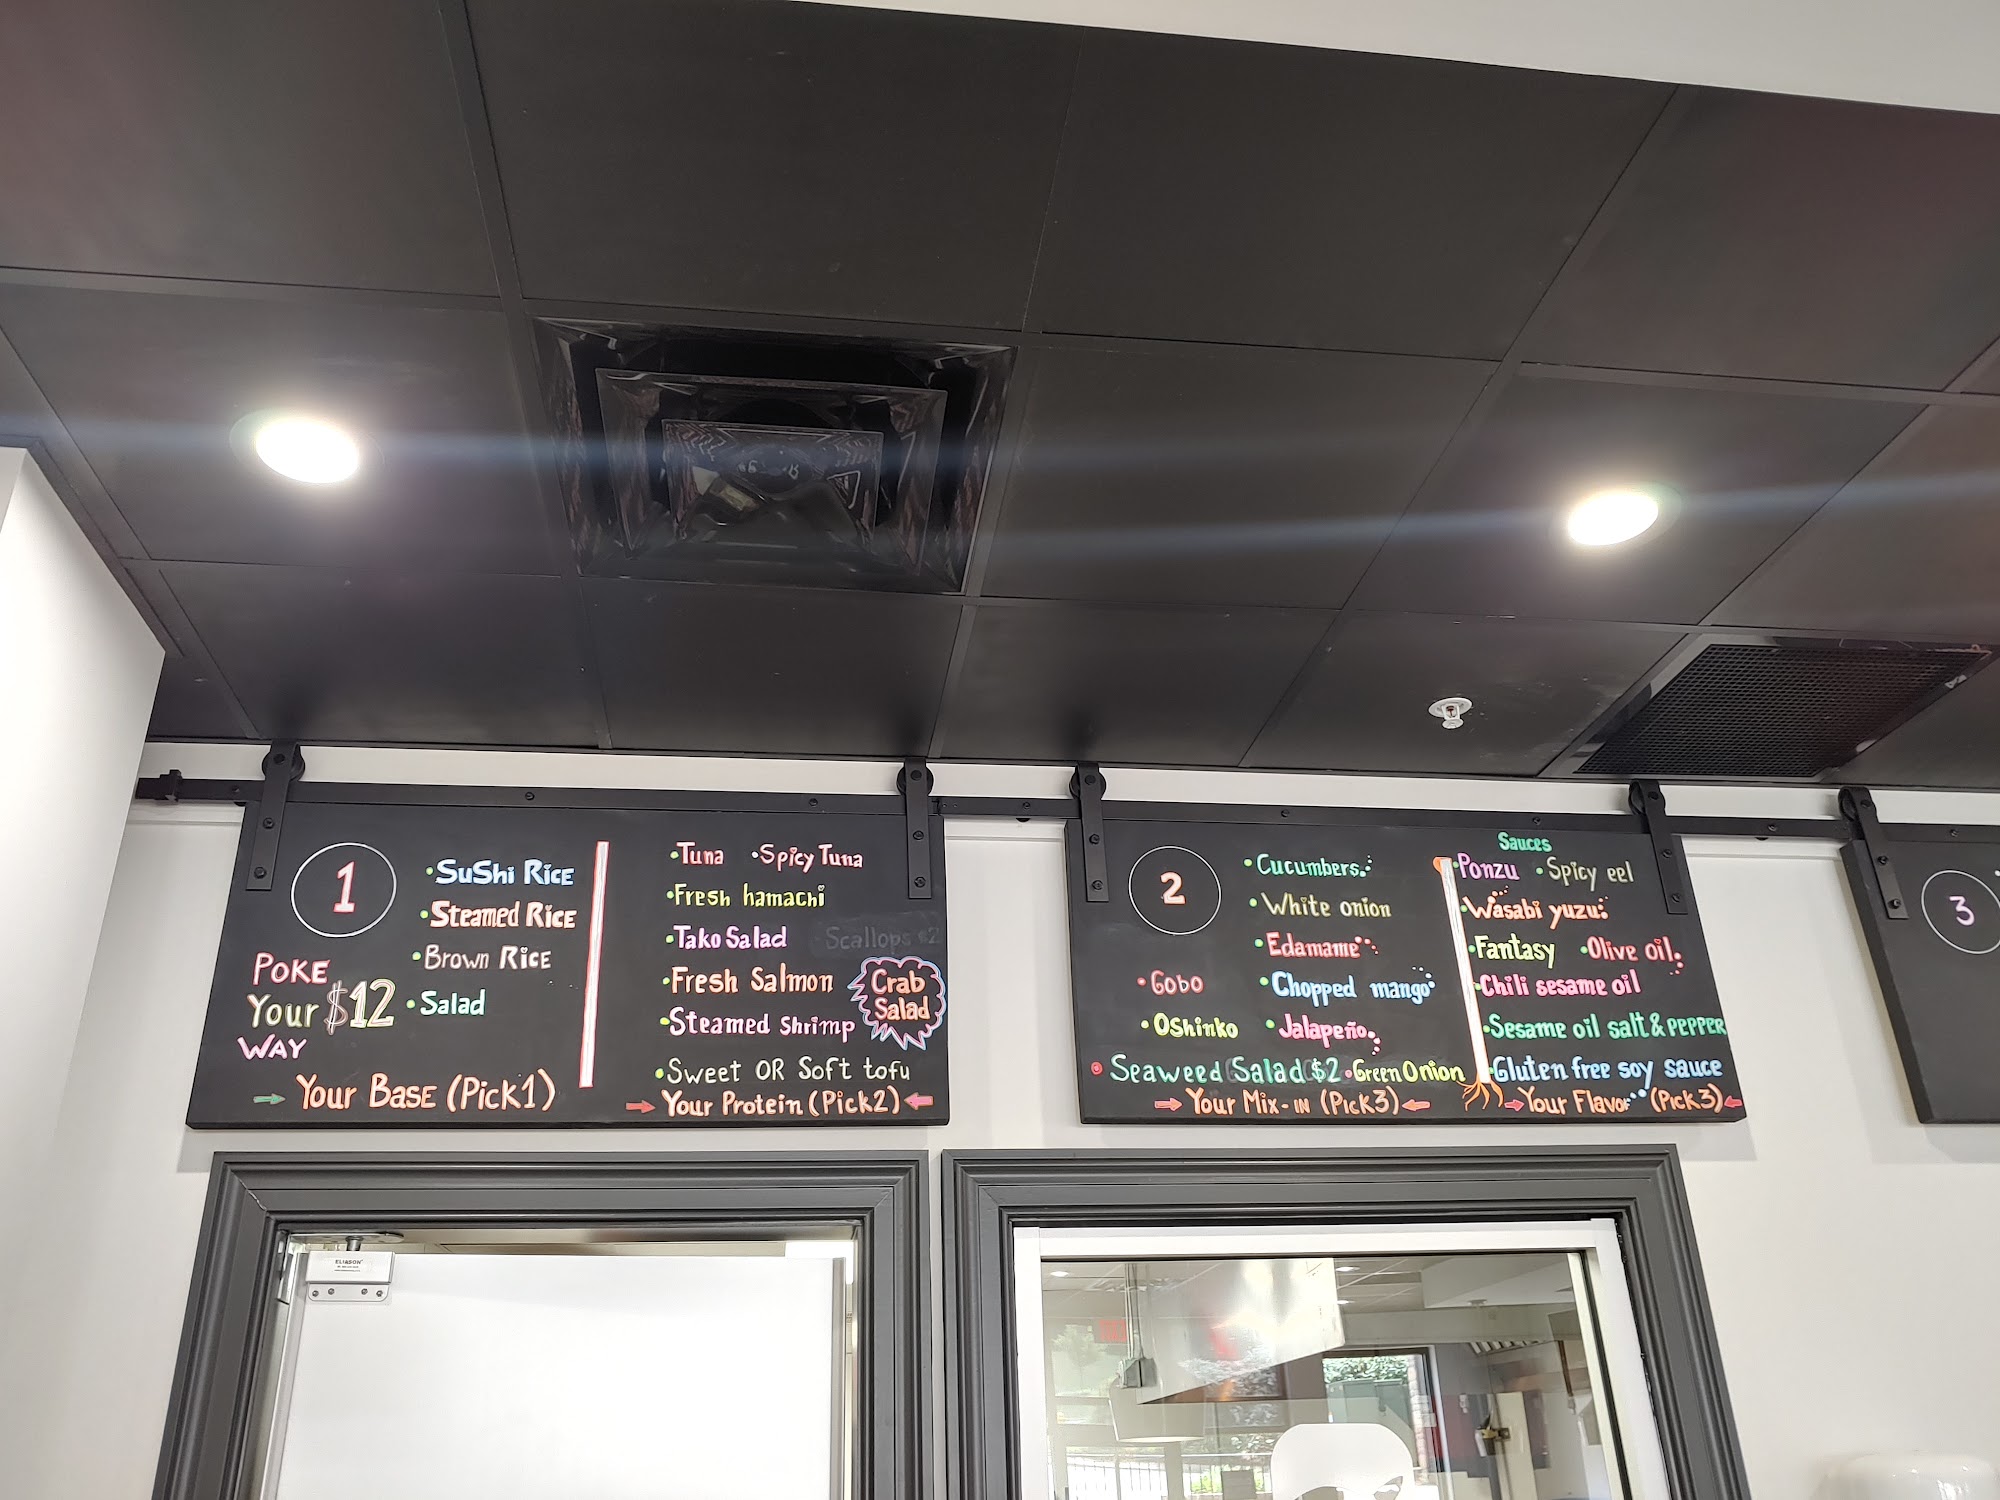 1
POKE
Your $12
WAY
•SuShi Rice
•Steamed Rice
•Brown Rice
•Salad
Your Base (Pick1)
•Tuna •Spicy Tuna
•Fresh hamachi
•Tako Salad Scallops $2
•Fresh Salmon
•Steamed Shrimp
Crab
Salad
•Sweet OR Soft tofu
Your Protein (Pick2)
2
•Cucumbers
•White onion
•Edamame
•Gobo •Chopped mango
•Oshinko •Jalapeño
•Seaweed Salad $2 •Green Onion
Your Mix-in (Pick3)
Sauces
•Ponzu •Spicy eel
•Wasabi yuzu
•Fantasy •Olive oil
•Chili sesame oil
•Sesame oil salt & pepper
•Gluten free soy sauce
Your Flavor (Pick3)
3
ELIASON